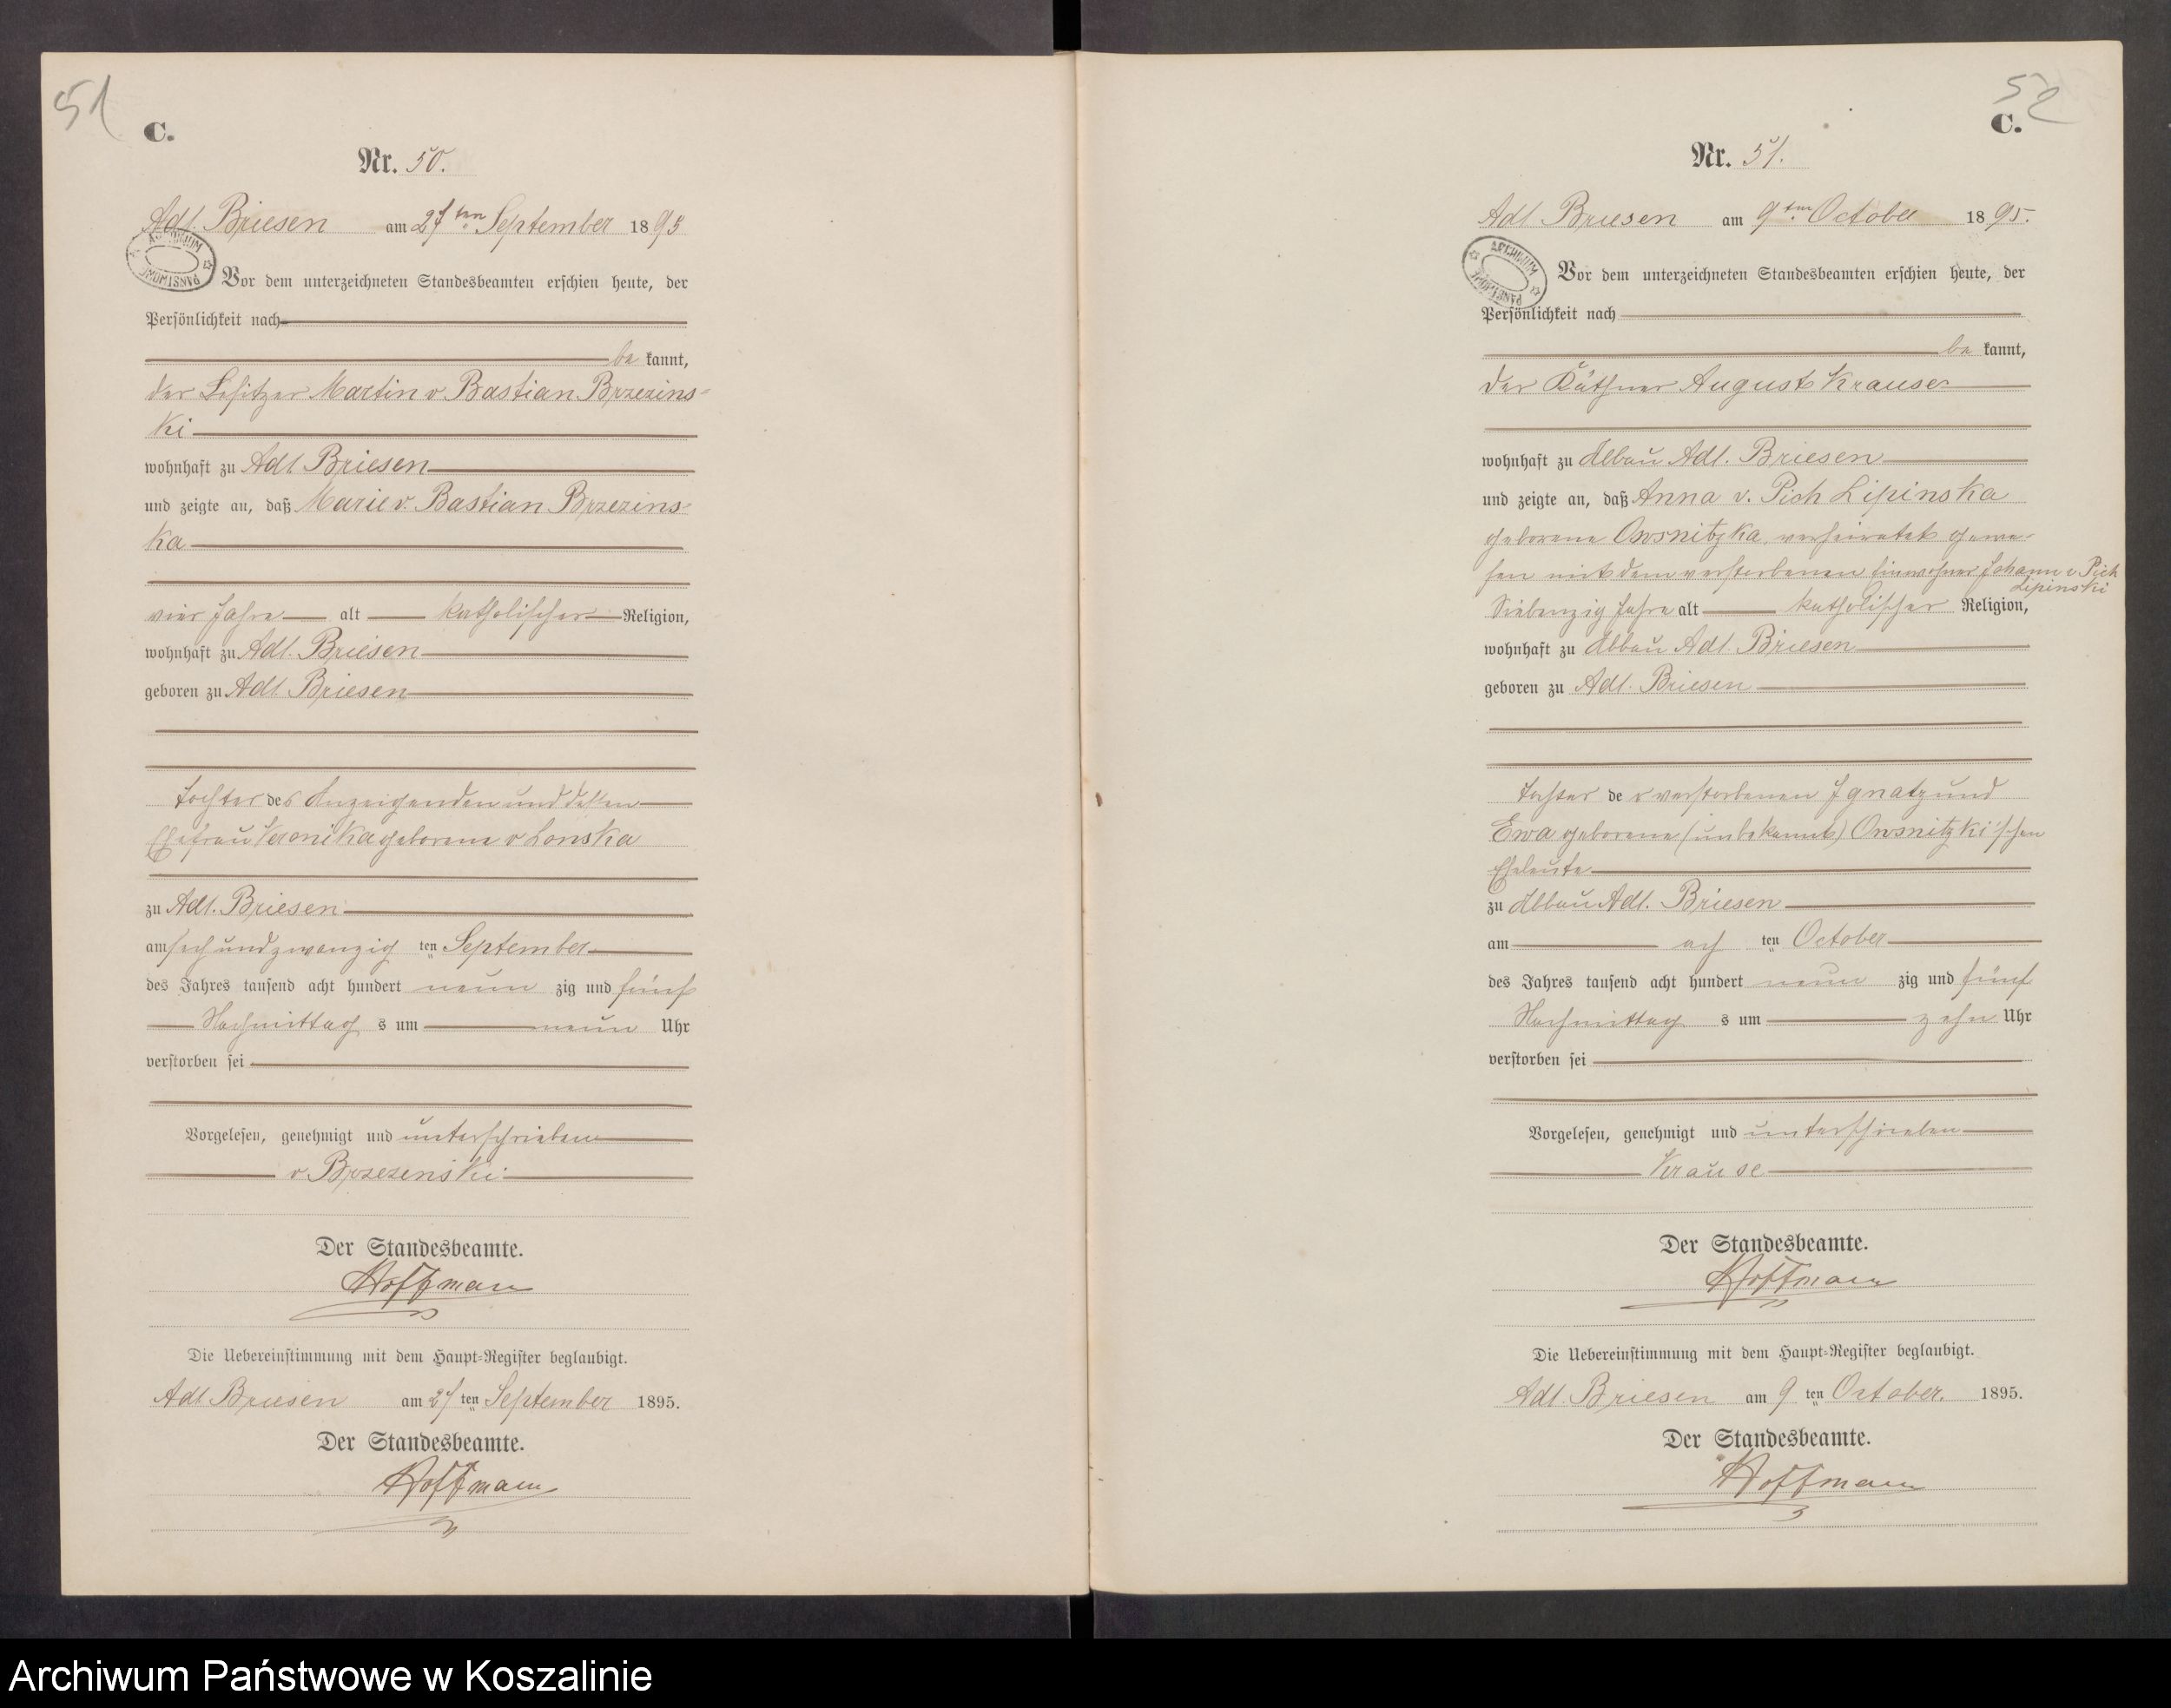 51
C.
Nr. 50.
Adl. Briesen am 27ten September 1895
ARCHIWUM PAŃSTWOWE
Vor dem unterzeichneten Standesbeamten erschien heute, der
Persönlichkeit nach
be kannt,
der Besitzer Martin v. Bastian Brzezins-
ki
wohnhaft zu Adl Briesen
und zeigte an, daß Marie v. Bastian Brzezins-
ka
vier Jahre alt katholischer Religion,
wohnhaft zu Adl. Briesen
geboren zu Adl Briesen
Tochter des Anzeigenden und dessen
Ehefrau Veronika geborene v Lonska
zu Adl. Briesen
am sechundzwanzig ten September
des Jahres tausend acht hundert neun zig und fünf
Nachmittag s um neun Uhr
verstorben sei
Vorgelesen, genehmigt und unterschrieben
v Brzezenski
Der Standesbeamte.
Hoffmann
Die Uebereinstimmung mit dem Haupt-Register beglaubigt.
Adl Briesen am 27 ten September 1895.
Der Standesbeamte.
Hoffmann
52
C.
Nr. 51.
Adl Briesen am 9ten October 1895.
ARCHIWUM PAŃSTWOWE
Vor dem unterzeichneten Standesbeamten erschien heute, der
Persönlichkeit nach
be kannt,
der Käthner August Krause
wohnhaft zu Abbau Adl. Briesen
und zeigte an, daß Anna v. Pich Lipinska
geborene Owsnitzka, verheiratet gewe-
sen mit dem verstorbenen Einwohner Johann v Pich
Lipinski
Siebenzig Jahre alt katholischer Religion,
wohnhaft zu Abbau Adl. Briesen
geboren zu Adl. Briesen
Tochter de r verstorbenen Ignatz und
Ewa geborene (unbekannt) Owsnitzki'schen
Eheleute
zu Abbau Adl. Briesen
am ach ten October
des Jahres tausend acht hundert neun zig und fünf
Nachmittag s um zehn Uhr
verstorben sei
Vorgelesen, genehmigt und unterschrieben
Krause
Der Standesbeamte.
Hoffmann
Die Uebereinstimmung mit dem Haupt-Register beglaubigt.
Adl. Briesen am 9 ten October. 1895.
Der Standesbeamte.
Hoffmann
Archiwum Państwowe w Koszalinie